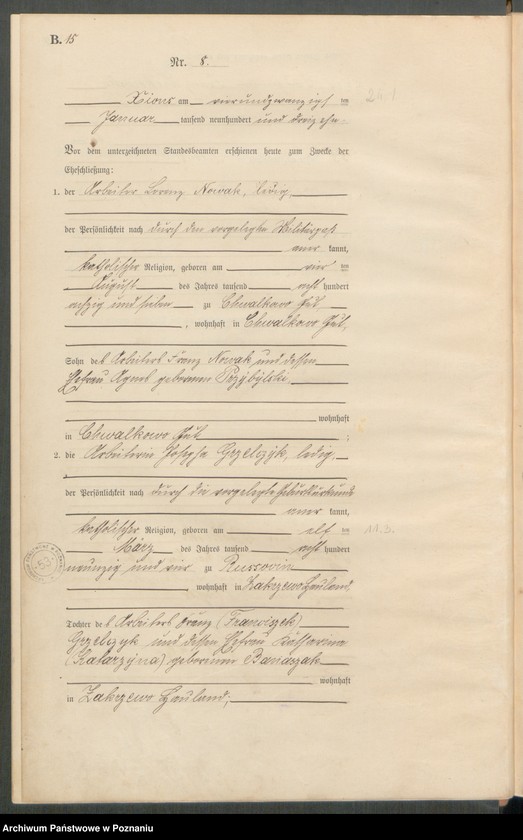 B. 15
Nr. 8.
Xions am vierundzwanzigsten
24.1
Januar tausend neunhundert und dreizehn
Vor dem unterzeichneten Standesbeamten erschienen heute zum Zwecke der
Eheschließung:
1. der Arbeiter Lorenz Nowak, ledig,
der Persönlichkeit nach durch den vorgelegten Militärpaß
aner kannt,
katholischer Religion, geboren am vier ten
August des Jahres tausend acht hundert
achzig und sieben zu Chwalkowo Gut,
, wohnhaft in Chwalkowo Gut,
Sohn des Arbeiters Franz Nowak und dessen
Ehefrau Agnes geborenen Przybylski
wohnhaft
in Chwalkowo Gut ;
2. die Arbeiterin Josepha Grzelczyk, ledig,
der Persönlichkeit nach durch die vorgelegte Geburtsurkunde
aner kannt,
katholischer Religion, geboren am elf ten
11.3.
März des Jahres tausend acht hundert
neunzig und vier zu
wohnhaft in Zakrzewo Hauland,
Tochter des Arbeiters Franz (Franciszek)
Grzelczyk und dessen Ehefrau Katharina
(Katarzyna) geborenen Banaszak
wohnhaft
in Zakrzewo Hauland;
Archiwum Państwowe w Poznaniu